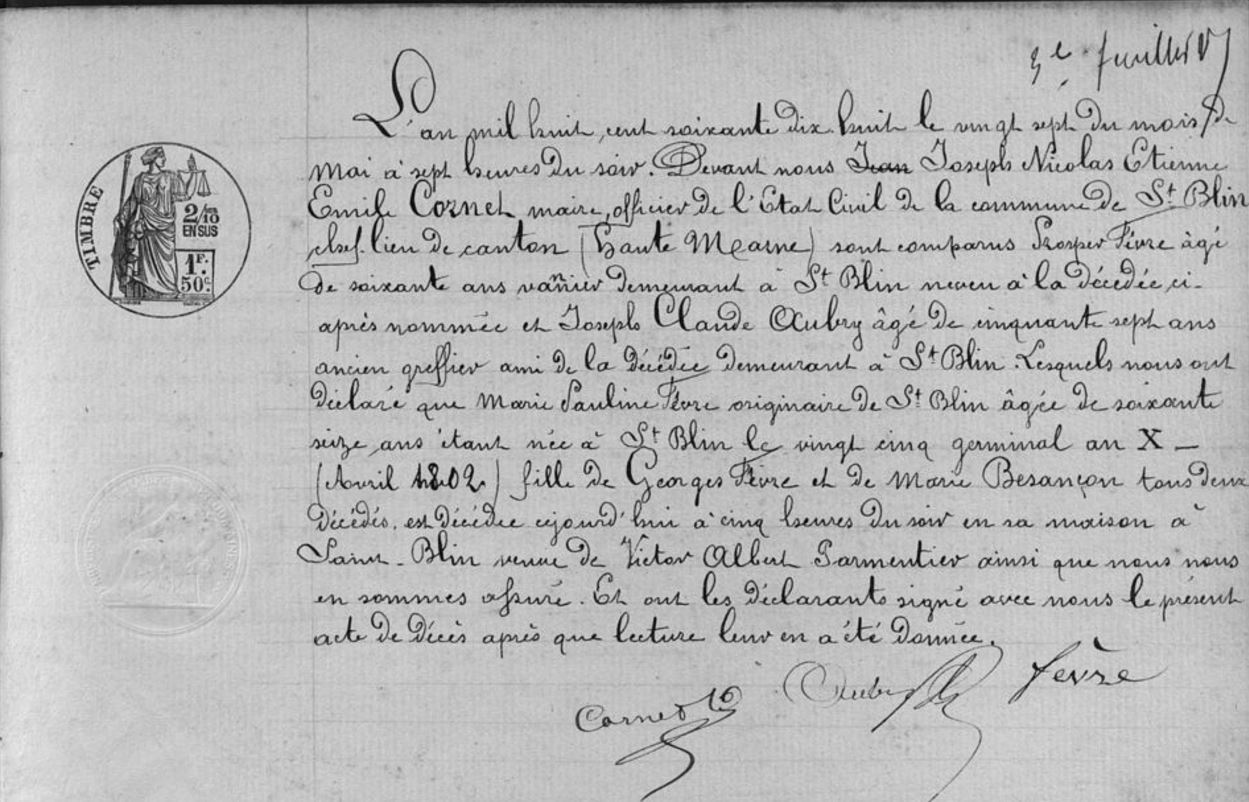 3e feuillet
L'an mil huit cent soixante dix huit le vingt sept du mois de
mai à sept heures du soir. Devant nous Jean Joseph Nicolas Etienne
Emile Cornet maire, officier de l'Etat Civil de la commune de St Blin
chef-lieu de canton (Haute Marne) sont comparus Prosper Fèvre âgé
de soixante ans vannier demeurant à St Blin neveu à la décédée, ci-
après nommée et Joseph Claude Aubry âgé de cinquante sept ans
ancien greffier ami de la décédée demeurant à St Blin. Lesquels nous ont
déclaré que Marie Pauline Fèvre originaire de St Blin âgée de soixante
seize ans étant née à St Blin le vingt cinq germinal an X —
(Avril 1802) fille de Georges Fèvre et de Marie Besançon tous deux
décédés, est décédée cejourd'hui à cinq heures du soir en sa maison à
Saint-Blin veuve de Victor Albert Parmentier ainsi que nous nous
en sommes assuré. Et ont les déclarants signé avec nous le présent
acte de décès après que lecture leur en a été donnée.
Cornet Aubry fèvre
TIMBRE
2/10 EN SUS
1F. 50c.